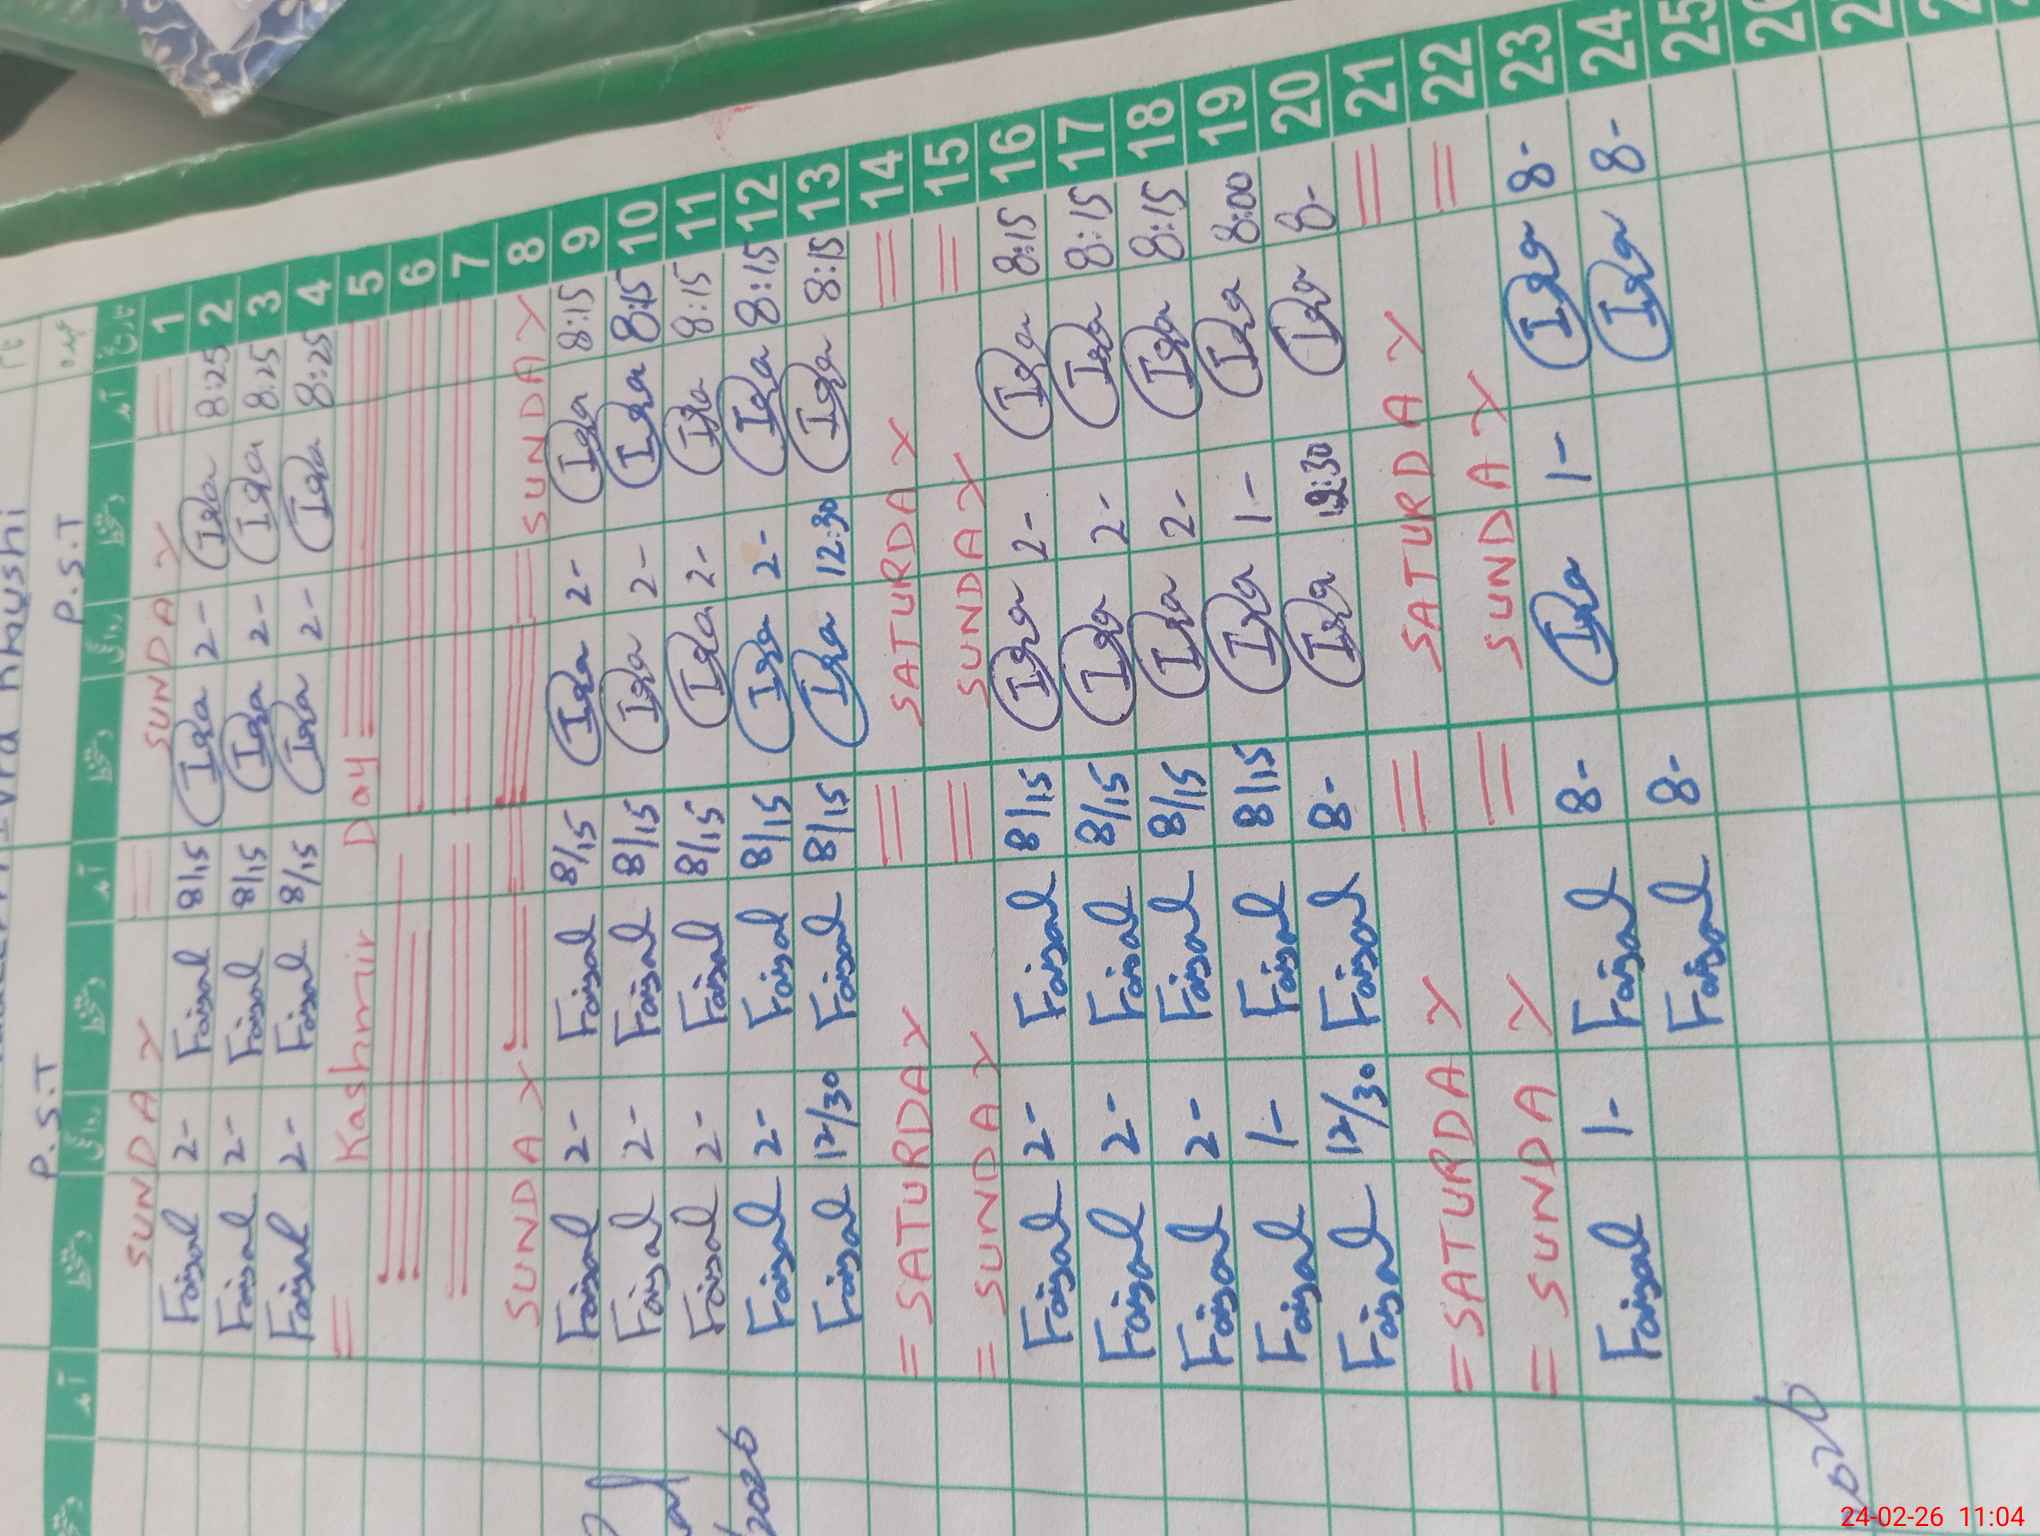 Iqra Khushi
P.S.T P.S.T
SUNDAY = SUNDAY = 1
Faisal 2- Faisal 8/15 Iqra 2- Iqra 8:25 2
Faisal 2- Faisal 8/15 Iqra 2- Iqra 8:25 3
Faisal 2- Faisal 8/15 Iqra 2- Iqra 8:25 4
= Kashmir Day = 5
6
7
SUNDAY SUNDAY 8
Faisal 2- Faisal 8/15 Iqra 2- Iqra 8:15 9
Faisal 2- Faisal 8/15 Iqra 2- Iqra 8:15 10
Faisal 2- Faisal 8/15 Iqra 2- Iqra 8:15 11
Faisal 2- Faisal 8/15 Iqra 2- Iqra 8:15 12
Faisal 12/30 Faisal 8/15 Iqra 12:30 Iqra 8:15 13
= SATURDAY = SATURDAY = 14
= SUNDAY = SUNDAY = 15
Faisal 2- Faisal 8/15 Iqra 2- Iqra 8:15 16
Faisal 2- Faisal 8/15 Iqra 2- Iqra 8:15 17
Faisal 2- Faisal 8/15 Iqra 2- Iqra 8:15 18
Faisal 1- Faisal 8/15 Iqra 1- Iqra 8:00 19
Faisal 12/30 Faisal 8- Iqra 12:30 Iqra 8- 20
= SATURDAY = SATURDAY = 21
= SUNDAY = SUNDAY = 22
Faisal 1- Faisal 8- Iqra 1- Iqra 8- 23
Faisal 8- Iqra 8- 24
25
2026
24-02-26 11:04